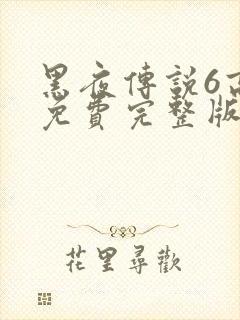 黑夜傳說6高
免費完整版
花里尋歡